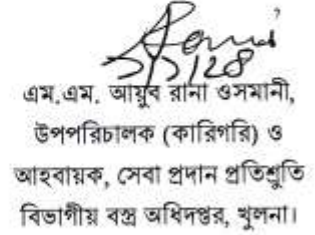 এম.এম. আয়ুব রানা ওসমানী,
উপপরিচালক (কারিগরি) ও
আহবায়ক, সেবা প্রদান প্রতিশ্রুতি
বিভাগীয় বস্ত্র অধিদপ্তর, খুলনা।